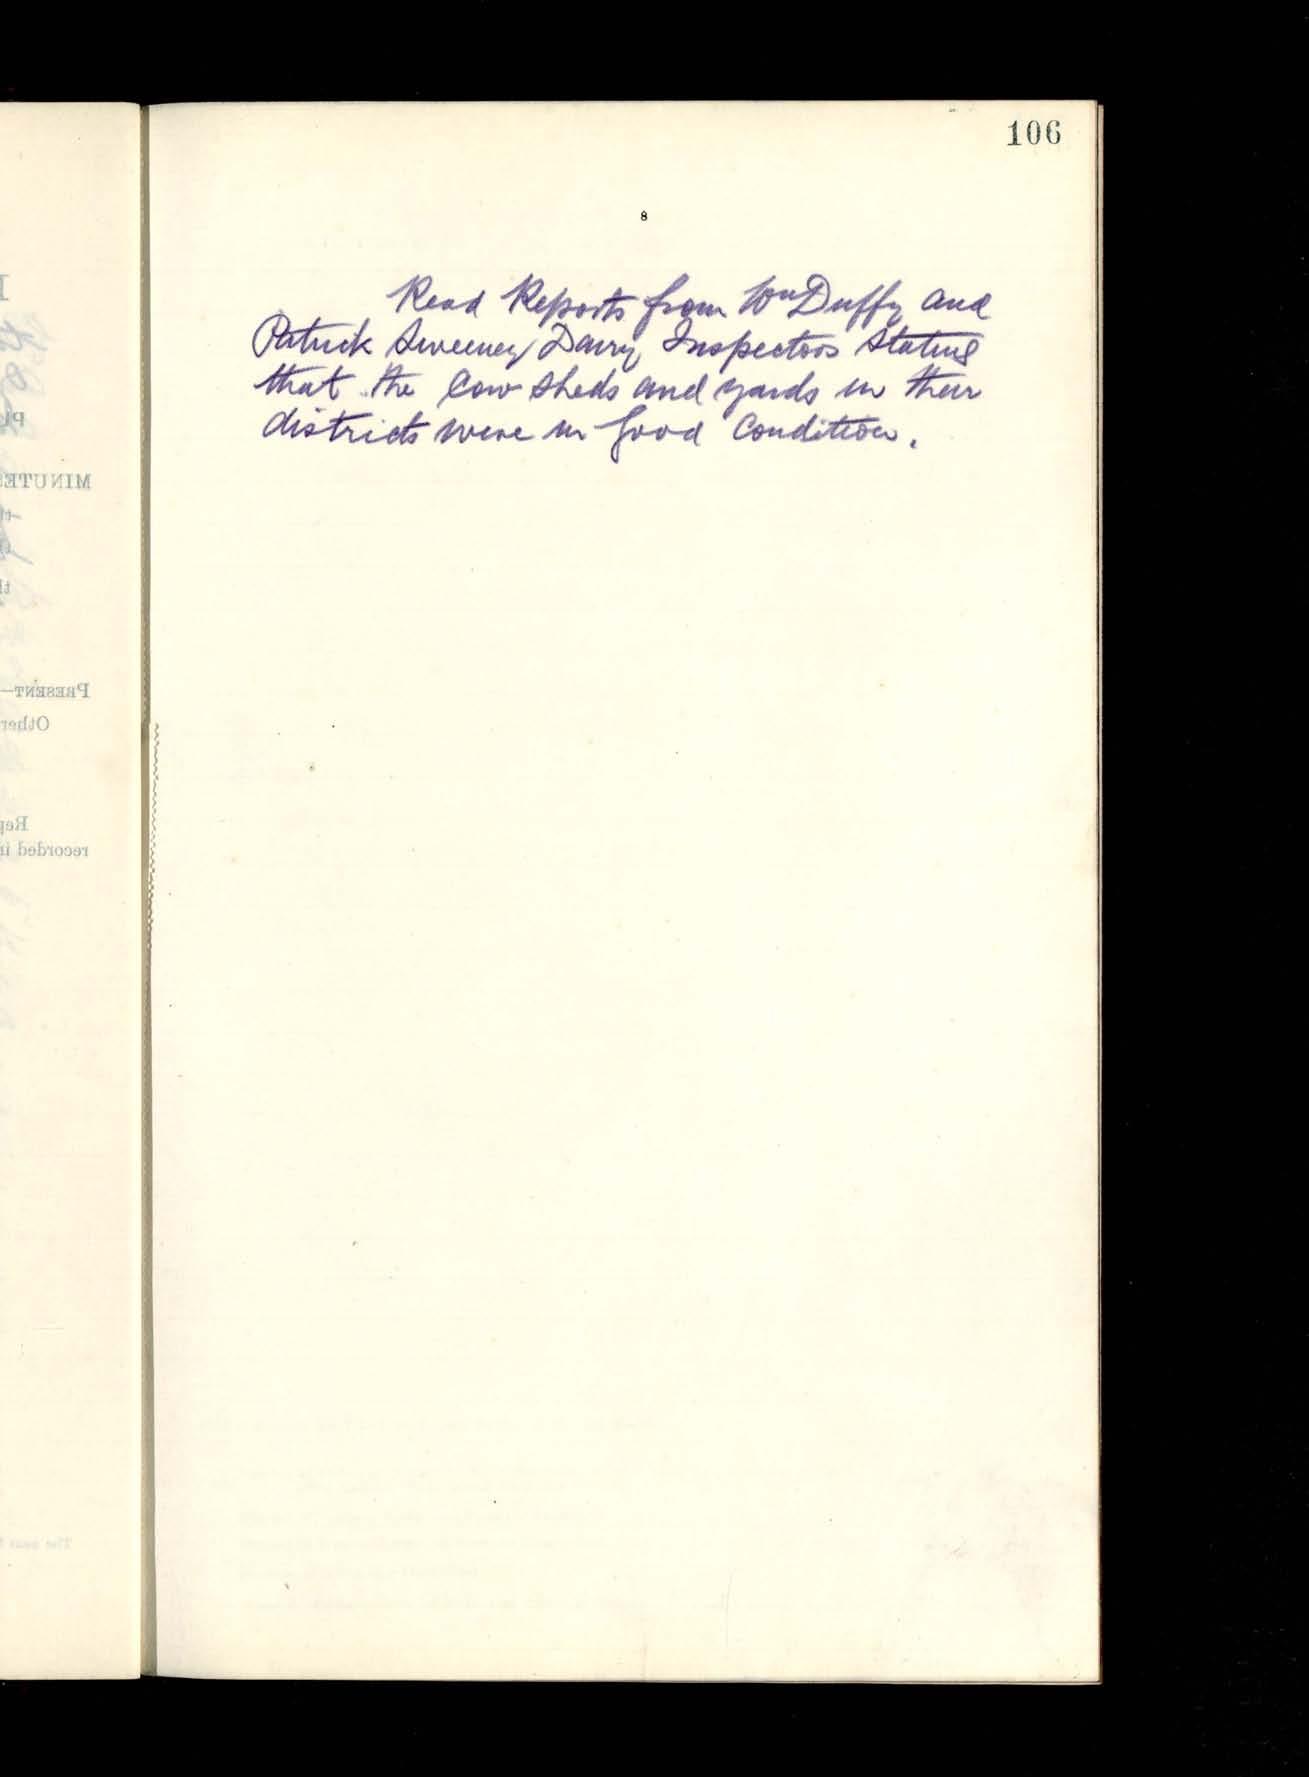 106
8
Read Reports from Wm Duffy and
Patrick Sweeney Dairy Inspectors Stating
that the Cow Sheds and yards in their
districts were in good Condition.
MINUTES
PRESENT—
Other
recorded